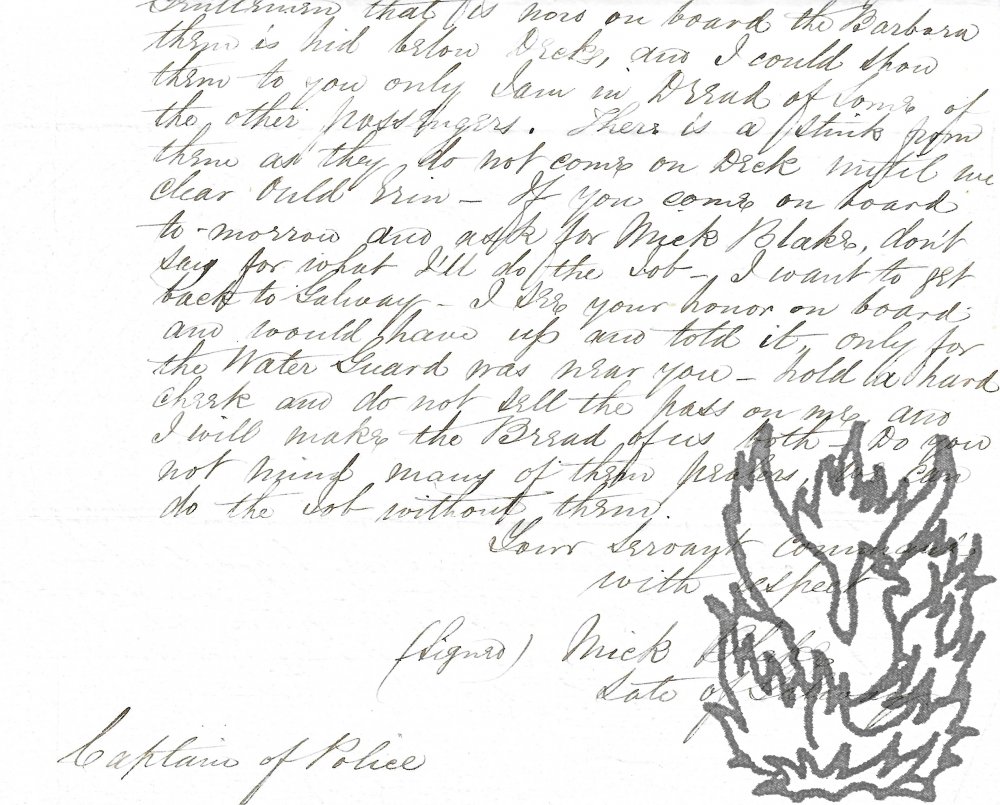 Gentlemen that is now on board the Barbara
them is hid below Decks, and I could show
them to you only I am in Dread of some of
the other passingers. There is a stink from
them as they do not come on Deck until we
clear Ould Erin – If you come on board
to-morrow and ask for Mick Blake, don't
say for what I'll do the Job – I want to get
back to Galway – I see your honor on board
and would have up and told it, only for
the Water Guard was near you – hold a hard
cheek and do not sell the pass on me and
I will make the Bread of us both – Do you
not mind many of them pealers, we can
do the Job without them.
Your servant command
with respect
(Signed) Mick Blake
Late of Galway
Captain of Police